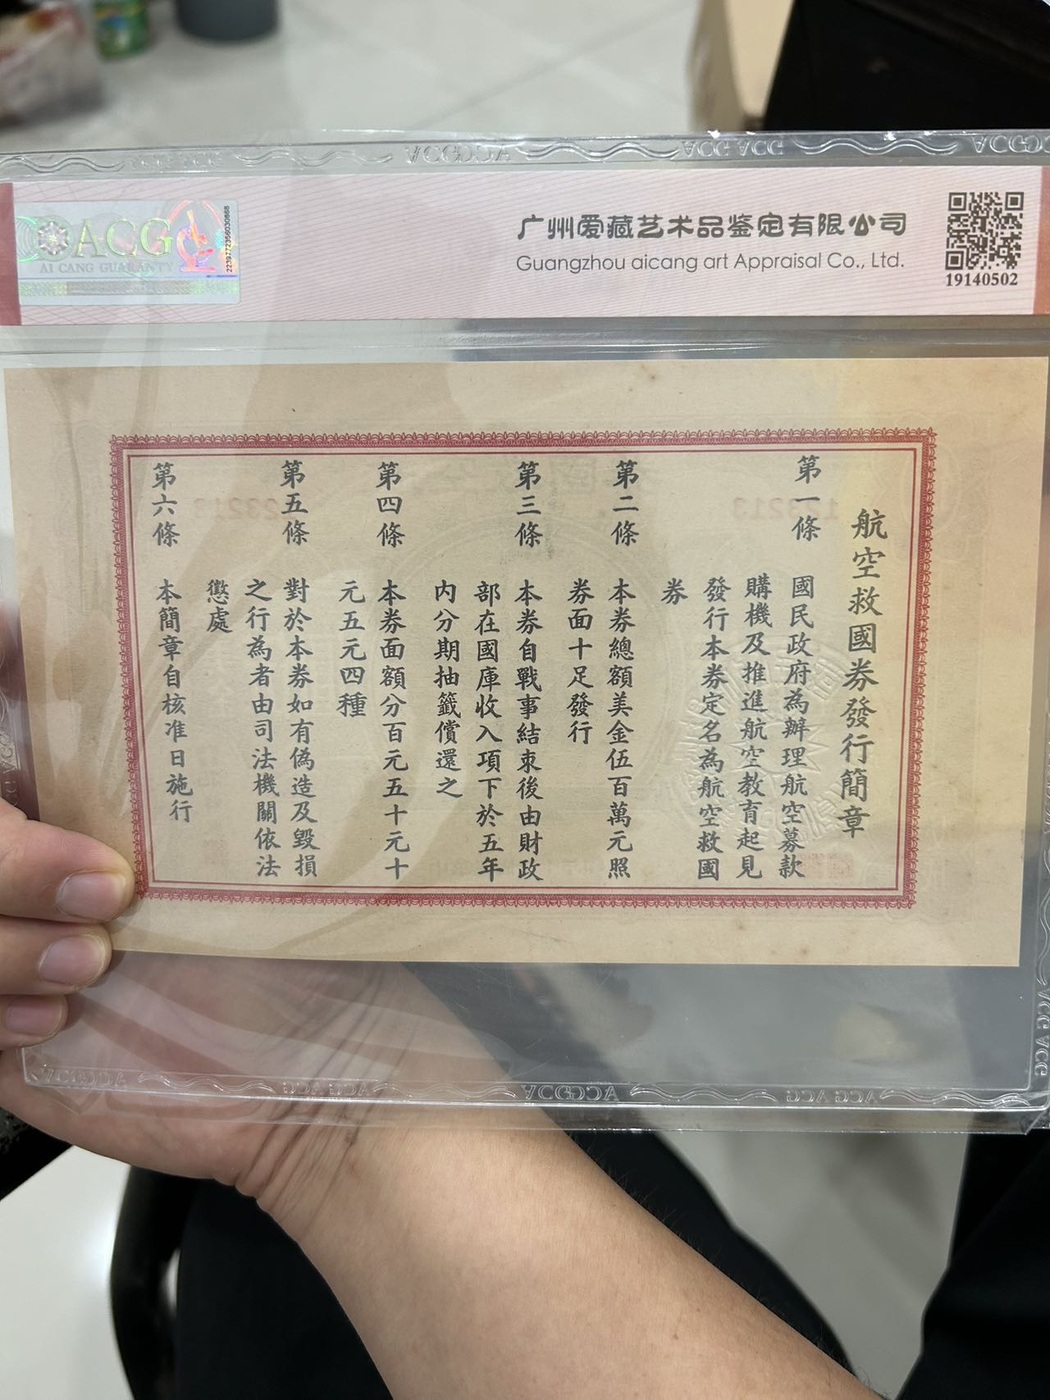 ACG
AI CANG GUARANTY
广州爱藏艺术品鉴定有限公司
Guangzhou aicang art Appraisal Co., Ltd.
19140502
航空救國券發行簡章
第一條 國民政府為辦理航空募款
購機及推進航空教育起見
發行本券定名為航空救國
券
第二條 本券總額美金伍百萬元照
券面十足發行
第三條 本券自戰事結束後由財政
部在國庫收入項下於五年
内分期抽籤償還之
第四條 本券面額分百元五十元十
元五元四種
第五條 對於本券如有偽造及毀損
之行為者由司法機關依法
懲處
第六條 本簡章自核准日施行